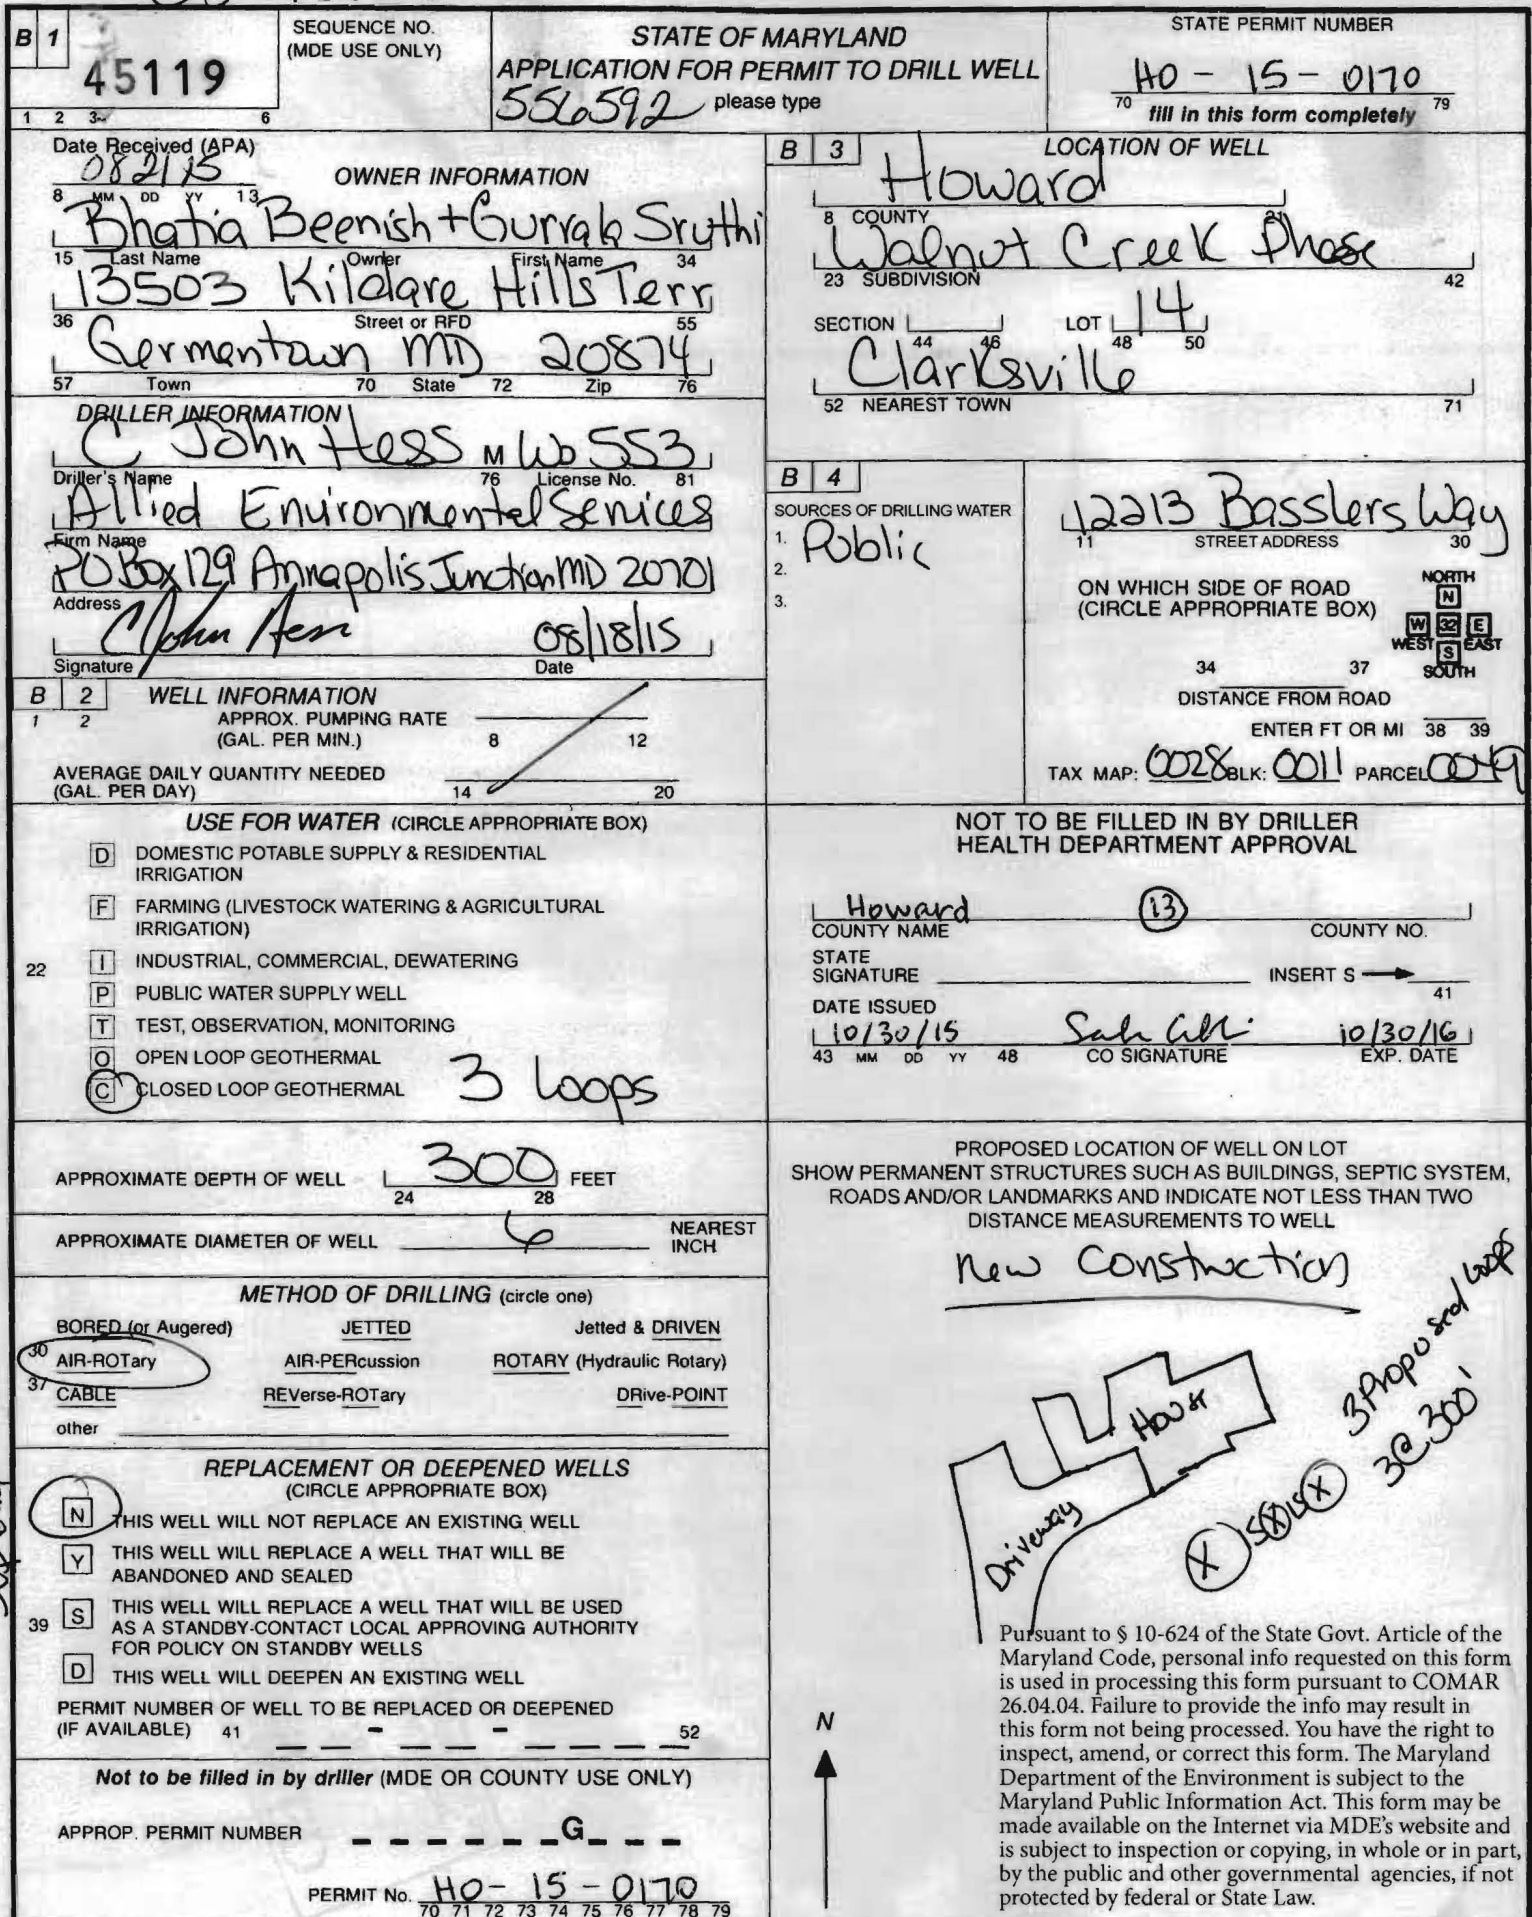 B 1
45119
1 2 3 6
SEQUENCE NO.
(MDE USE ONLY)
STATE OF MARYLAND
APPLICATION FOR PERMIT TO DRILL WELL
556592 please type
STATE PERMIT NUMBER
HO - 15 - 0170
70 fill in this form completely 79
Date Received (APA)
082115
8 MM DD YY 13
OWNER INFORMATION
Bhatia Beenish + Gurrala Sruthi
15 Last Name Owner First Name 34
13503 Kildare Hills Terr
36 Street or RFD 55
Germantown MD 20874
57 Town 70 State 72 Zip 76
DRILLER INFORMATION
C John Hess M Wo 553
Driver's Name 76 License No. 81
Allied Environmental Services
Firm Name
PO Box 129 Annapolis Junction MD 20701
Address
C John Hess 08/18/15
Signature Date
B 2 WELL INFORMATION
1 2
APPROX. PUMPING RATE
(GAL. PER MIN.) 8 12
AVERAGE DAILY QUANTITY NEEDED
(GAL. PER DAY) 14 20
USE FOR WATER (CIRCLE APPROPRIATE BOX)
D DOMESTIC POTABLE SUPPLY & RESIDENTIAL
IRRIGATION
F FARMING (LIVESTOCK WATERING & AGRICULTURAL
IRRIGATION)
22 I INDUSTRIAL, COMMERCIAL, DEWATERING
P PUBLIC WATER SUPPLY WELL
T TEST, OBSERVATION, MONITORING
O OPEN LOOP GEOTHERMAL
C CLOSED LOOP GEOTHERMAL 3 Loops
APPROXIMATE DEPTH OF WELL 300 FEET
24 28
APPROXIMATE DIAMETER OF WELL 6 NEAREST
INCH
METHOD OF DRILLING (circle one)
BORED (or Augered) JETTED Jetted & DRIVEN
30 AIR-ROTary AIR-PERcussion ROTARY (Hydraulic Rotary)
37 CABLE REVerse-ROTary DRive-POINT
other
REPLACEMENT OR DEEPENED WELLS
(CIRCLE APPROPRIATE BOX)
N THIS WELL WILL NOT REPLACE AN EXISTING WELL
Y THIS WELL WILL REPLACE A WELL THAT WILL BE
ABANDONED AND SEALED
39 S THIS WELL WILL REPLACE A WELL THAT WILL BE USED
AS A STANDBY-CONTACT LOCAL APPROVING AUTHORITY
FOR POLICY ON STANDBY WELLS
D THIS WELL WILL DEEPEN AN EXISTING WELL
PERMIT NUMBER OF WELL TO BE REPLACED OR DEEPENED
(IF AVAILABLE) 41 - - 52
Not to be filled in by driller (MDE OR COUNTY USE ONLY)
APPROP. PERMIT NUMBER G
PERMIT No. HO - 15 - 0170
70 71 72 73 74 75 76 77 78 79
B 3 LOCATION OF WELL
Howard
8 COUNTY 21
Walnut Creek Phase
23 SUBDIVISION 42
SECTION LOT 14
44 46 48 50
Clarksville
52 NEAREST TOWN 71
B 4
SOURCES OF DRILLING WATER
1. Public
2.
3.
12213 Basslers Way
11 STREET ADDRESS 30
ON WHICH SIDE OF ROAD
(CIRCLE APPROPRIATE BOX)
NORTH
N
W 32 E
WEST S EAST
SOUTH
34 37
DISTANCE FROM ROAD
ENTER FT OR MI 38 39
TAX MAP: 0028 BLK: 0011 PARCEL 0049
NOT TO BE FILLED IN BY DRILLER
HEALTH DEPARTMENT APPROVAL
Howard 13
COUNTY NAME COUNTY NO.
STATE
SIGNATURE INSERT S
41
DATE ISSUED
10/30/15 10/30/16
43 MM DD YY 48 CO SIGNATURE EXP. DATE
PROPOSED LOCATION OF WELL ON LOT
SHOW PERMANENT STRUCTURES SUCH AS BUILDINGS, SEPTIC SYSTEM,
ROADS AND/OR LANDMARKS AND INDICATE NOT LESS THAN TWO
DISTANCE MEASUREMENTS TO WELL
New Construction
3 Proposed loops
3 @ 300'
House
Driveway
X 15 X 15 X
N
Pursuant to § 10-624 of the State Govt. Article of the
Maryland Code, personal info requested on this form
is used in processing this form pursuant to COMAR
26.04.04. Failure to provide the info may result in
this form not being processed. You have the right to
inspect, amend, or correct this form. The Maryland
Department of the Environment is subject to the
Maryland Public Information Act. This form may be
made available on the Internet via MDE's website and
is subject to inspection or copying, in whole or in part,
by the public and other governmental agencies, if not
protected by federal or State Law.